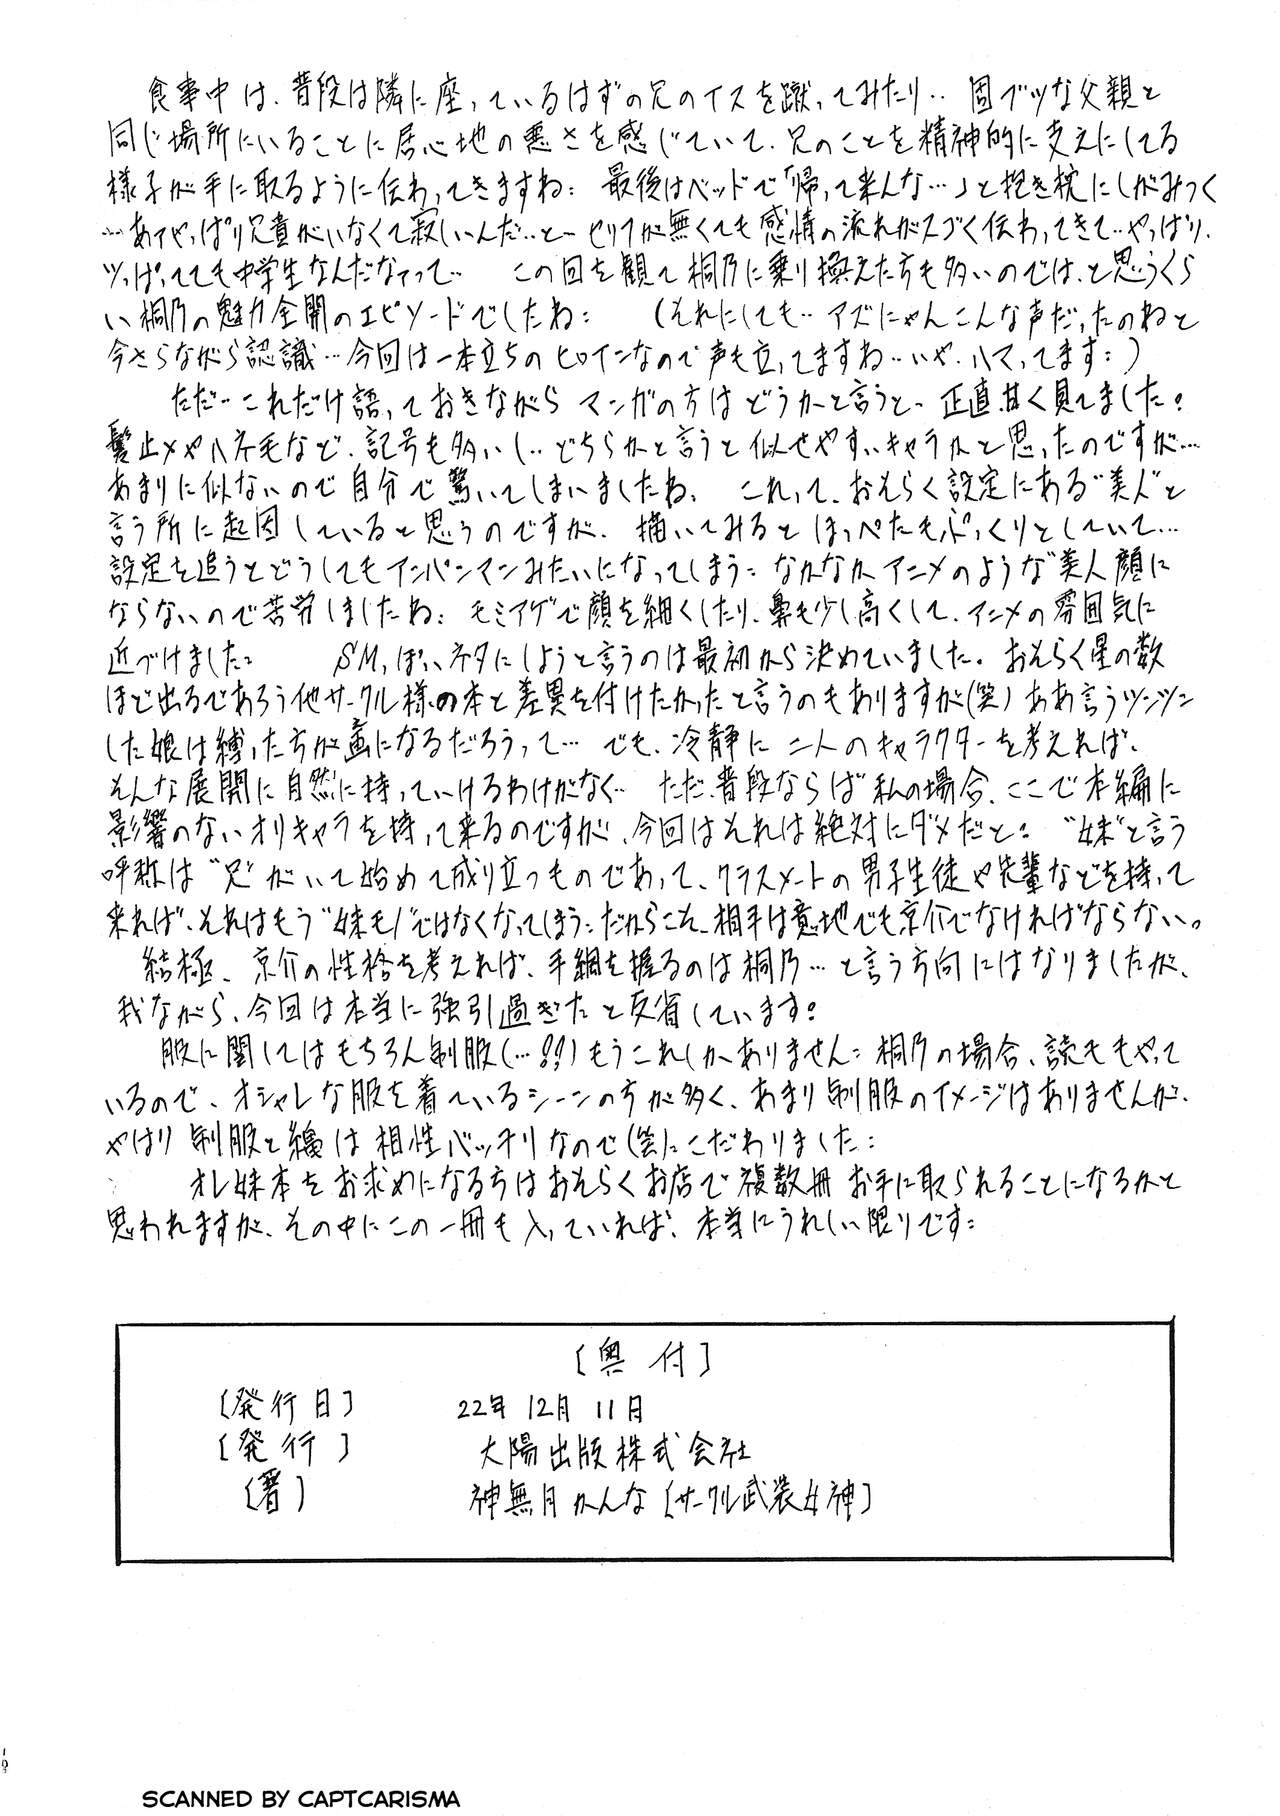 食事中は、普段は隣に座っているはずの兄のイスを蹴ってみたり‥ 固ブツな父親と
同じ場所にいることに居心地の悪さを感じていて、兄のことを精神的に支えにしてる
様子が手に取るように伝わってきますね： 最後はベッドで「帰って来んな…」と抱き枕にしがみつく
…あァやっぱり兄貴がいなくて寂しいんだ‥とーセリフが無くても感情の流れがスゴく伝わってきて‥やっぱり、
ツッぱってても中学生なんだなァって‥ この回を観て桐乃に乗り換えた方も多いのでは、と思うくら
い桐乃の魅力全開のエピソードでしたね： （それにしても‥アズにゃんこんな声だったのねと
今さらながら認識…今回は一本立ちのヒロインなので声も立ってますね‥いや、ハマってます：）
ただ‥これだけ語っておきながらマンガの方はどうかと言うと‥正直、甘く見てました。
髪止メやハネ毛など、記号も多いし‥どちらかと言うと似せやすいキャラかと思ったのですが…
あまりに似ないので自分で驚いてしまいましたね、 これって、おそらく設定にある“美人”と
言う所に起因していると思うのですが、描いてみるとほっぺたもぷっくりとしていて…
設定を追うとどうしてもアンパンマンみたいになってしまう： なかなかアニメのような美人顔に
ならないので苦労しましたね： モミアゲで顔を細くしたり、鼻も少し高くして、アニメの雰囲気に
近づけました： SMっぽいネタにしようと言うのは最初から決めていました。おそらく星の数
ほど出るであろう他サークル様の本と差異を付けたかったと言うのもありますが（笑）ああ言うツンツン
した娘は縛った方が画になるだろうって… でも、冷静に二人のキャラクターを考えれば、
そんな展開に自然に持っていけるわけがなく‥ ただ、普段ならば私の場合、ここで本編に
影響のないオリキャラを持って来るのですが、今回はそれは絶対にダメだと： “妹”と言う
呼称は“兄”がいて始めて成り立つものであって、クラスメートの男子生徒や先輩などを持って
来れば、それはもう“妹モノ”ではなくなってしまう：だからこそ、相手は意地でも京介でなければならない。
結極、京介の性格を考えれば、手綱を握るのは桐乃…と言う方向にはなりましたが、
我ながら、今回は本当に強引過ぎたと反省しています：
服に関してはもちろん制服（…!!）もうこれしかありません： 桐乃の場合、読モもやって
いるので、オシャレな服を着ているシーンの方が多く、あまり制服のイメージはありませんが、
やはり制服と縄は相性バッチリなので（笑）こだわりました：
オレ妹本をお求めになる方はおそらくお店で複数冊お手に取られることになるかと
思われますが、その中にこの一冊も入っていれば、本当にうれしい限りです：
［奥付］
［発行日］ 22年12月11日
［発行］ 大陽出版株式会社
［著］ 神無月かんな［サークル武装女神］
SCANNED BY CAPTCARISMA